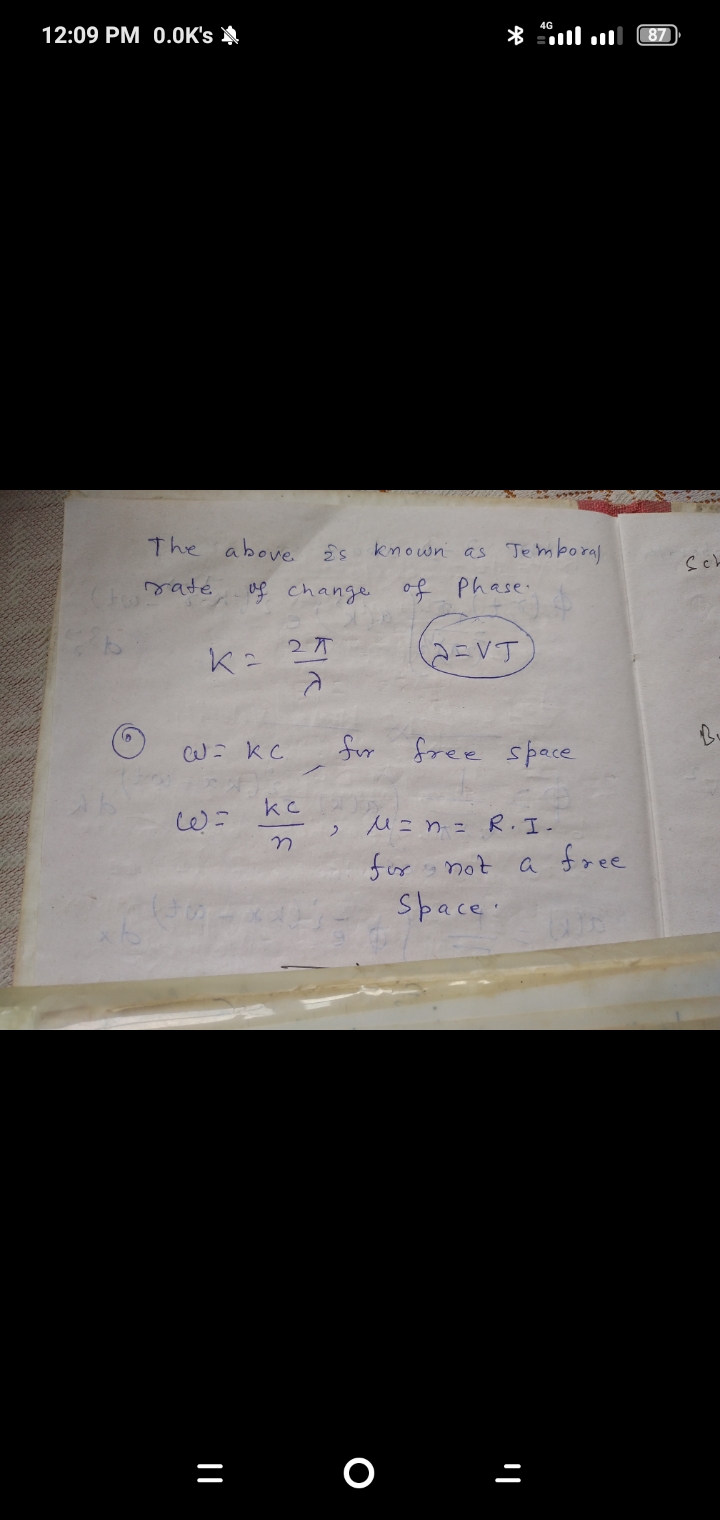 12:09 PM 0.0K's
4G 87
The above is known as Temporal
rate of change of Phase.
K = 2π/λ λ=VT
ω= kc, for free space
ω= kc/n, μ = n = R.I.
for not a free
Space.
Sch